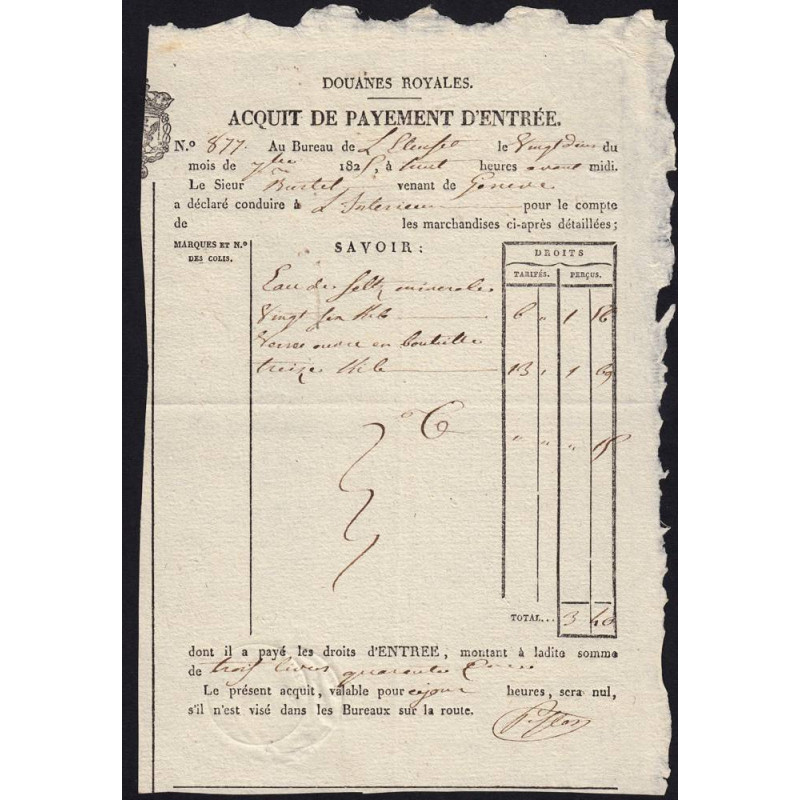 DOUANES ROYALES.
ACQUIT DE PAYEMENT D'ENTRÉE.
N.º 877. Au Bureau de le Vingt deux du
mois de 7bre 1825, à huit heures avant midi.
Le Sieur Burtel venant de Genève
a déclaré conduire à L'Interieur pour le compte
de les marchandises ci-après détaillées;
MARQUES ET N.º
DES COLIS.
SAVOIR:
DROITS
TARIFÉS. PERÇUS.
Eau de Seltz minerale
Vingt six Kilo 6 " 1 56
Verre en bouteille
treize Kilo 13 " 1 69
" " " 15
TOTAL... 3 40
dont il a payé les droits d'ENTREE, montant à ladite somme
de trois livres quarante
Le présent acquit, valable pour ce jour heures, sera nul,
s'il n'est visé dans les Bureaux sur la route.